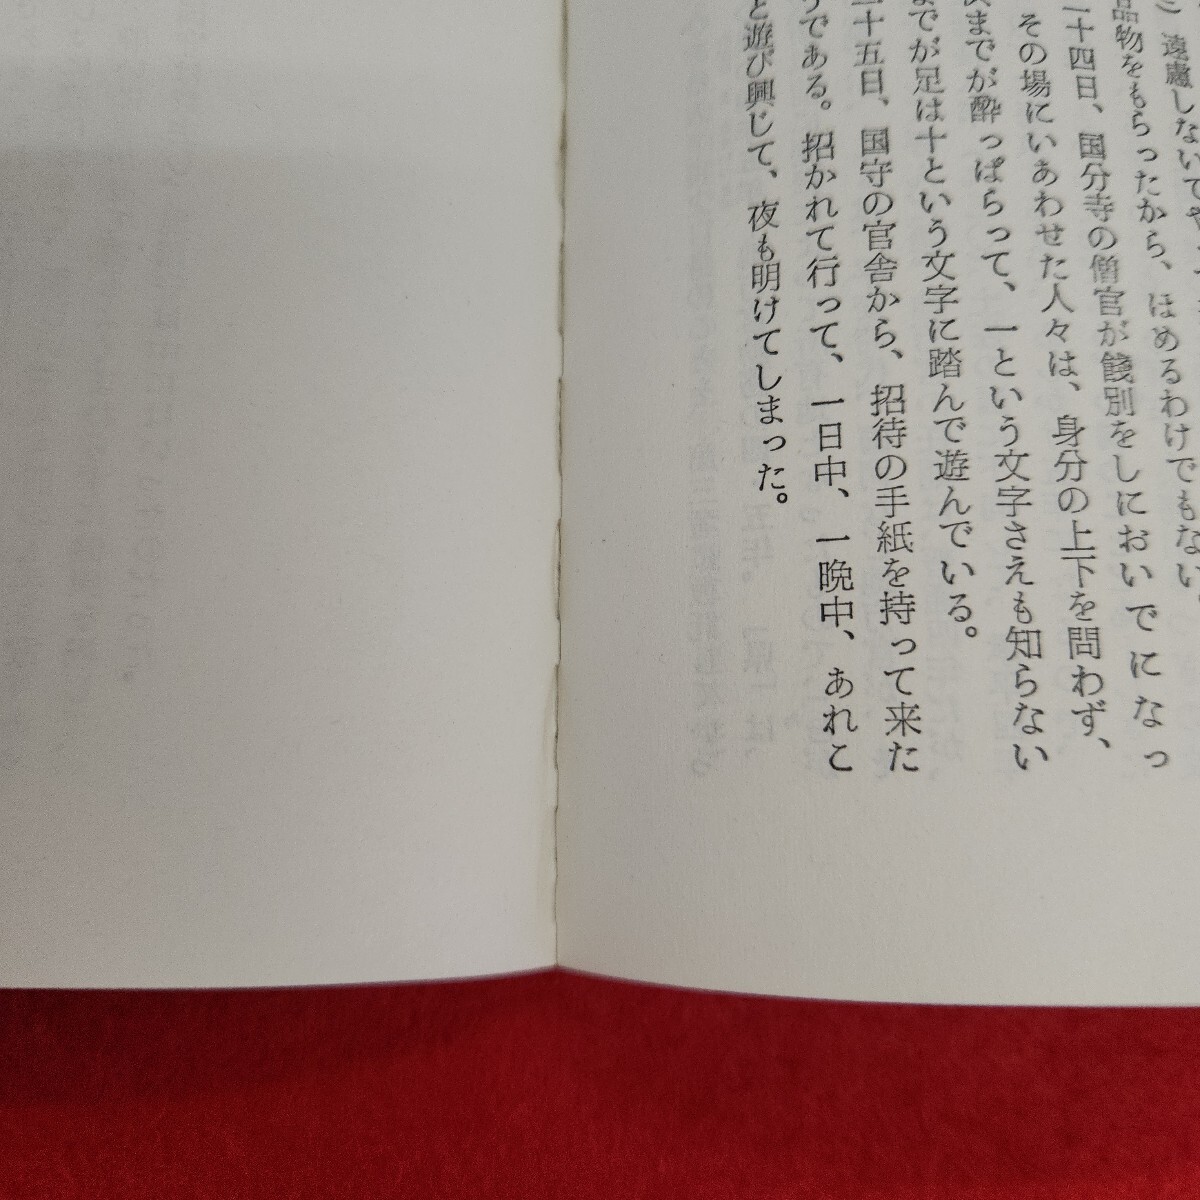 遠慮しないでや
品物をもらったから、ほめるわけでもない。
二十四日、国分寺の僧官が餞別をしにおいでになっ
その場にいあわせた人々は、身分の上下を問わず、
までが酔っぱらって、一という文字さえも知らない
までが足は十という文字に踏んで遊んでいる。
二十五日、国守の官舎から、招待の手紙を持って来た
うである。招かれて行って、一日中、一晩中、あれこ
と遊び興じて、夜も明けてしまった。